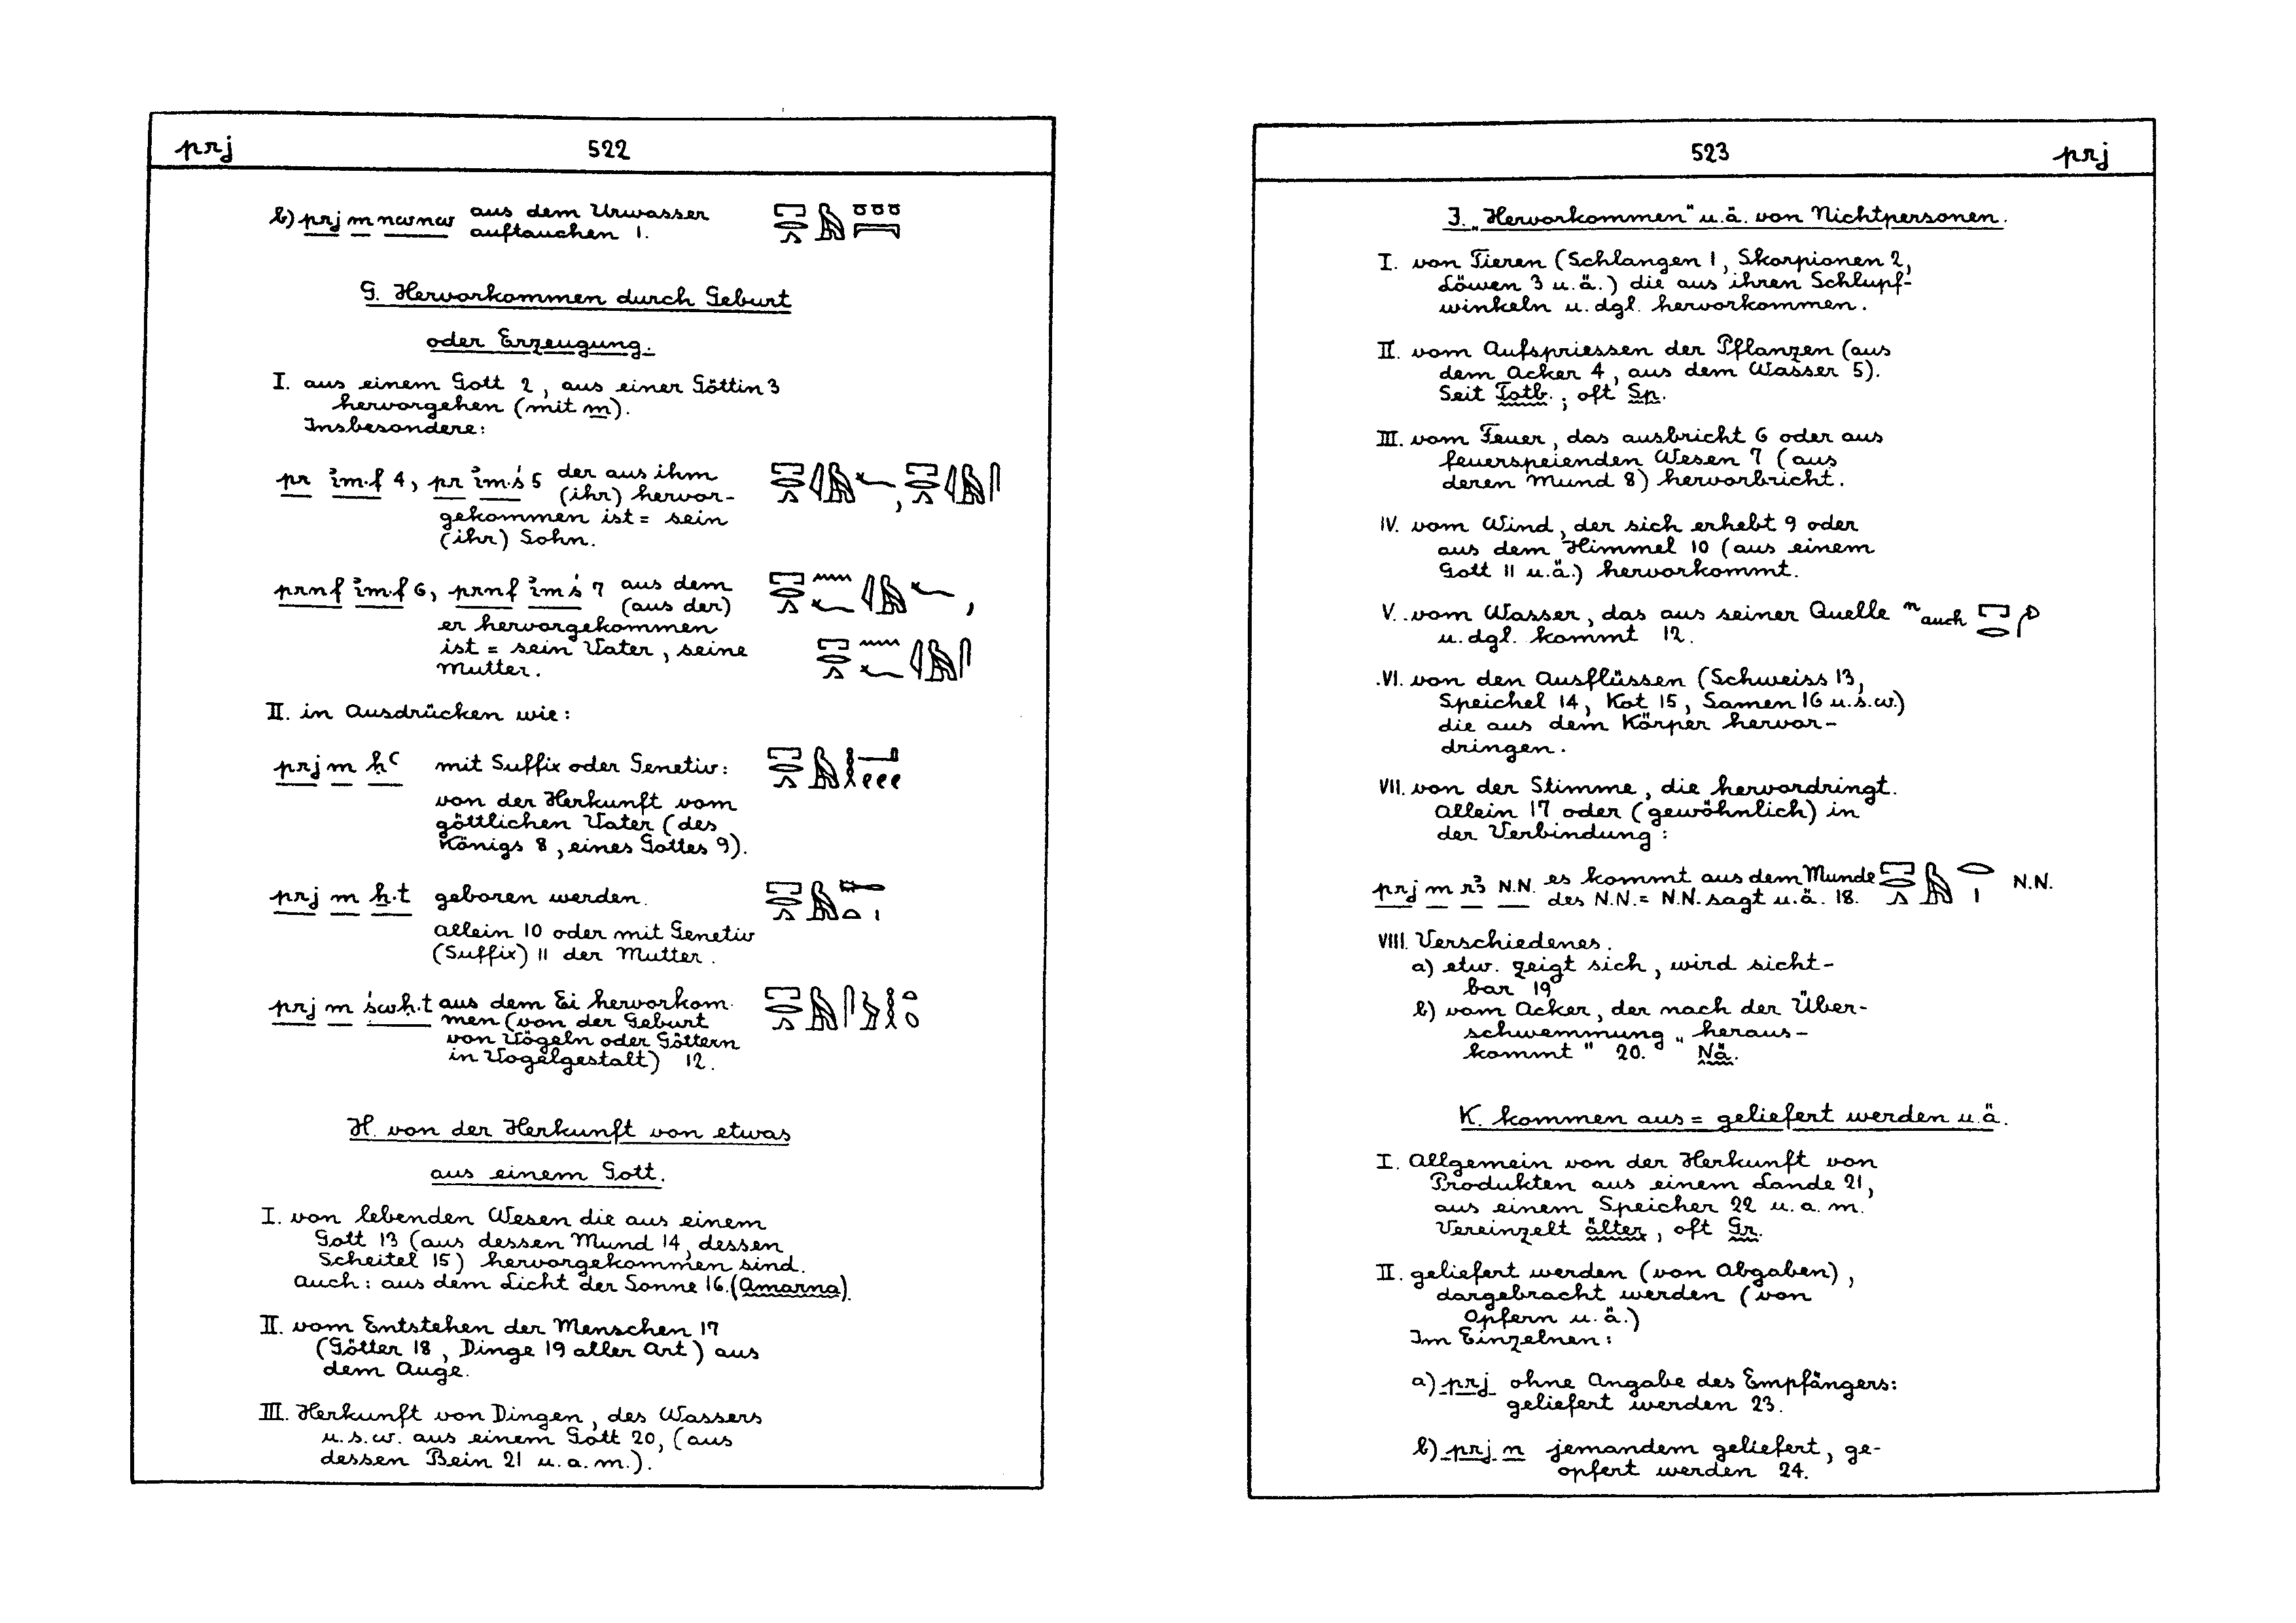 prj 522
b) prj m nwnw aus dem Urwasser
auftauchen 1.
G. Hervorkommen durch Geburt
oder Erzeugung.
I. aus einem Gott 2, aus einer Göttin 3
hervorgehen (mit m).
Insbesondere:
pr im.f 4, pr im.ś 5 der aus ihm
(ihr) hervor-
gekommen ist = sein
(ihr) Sohn.
prnf im.f 6, prnf im ś 7 aus dem
(aus der)
er hervorgekommen
ist = sein Vater, seine
Mutter.
II. in Ausdrücken wie:
prj m ḥꜥ mit Suffix oder Genetiv:
von der Herkunft vom
göttlichen Vater (des
Königs 8, eines Gottes 9).
prj m ẖ.t geboren werden.
allein 10 oder mit Genetiv
(Suffix) 11 der Mutter.
prj m św ḥ.t aus dem Ei hervorkom-
men (von der Geburt
von Vögeln oder Göttern
in Vogelgestalt) 12.
H. von der Herkunft von etwas
aus einem Gott.
I. von lebenden Wesen die aus einem
Gott 13 (aus dessen Mund 14, dessen
Scheitel 15) hervorgekommen sind.
Auch: aus dem Licht der Sonne 16. (Amarna).
II. vom Entstehen der Menschen 17
(Götter 18, Dinge 19 aller Art) aus
dem Auge.
III. Herkunft von Dingen, des Wassers
u.s.w. aus einem Gott 20, (aus
dessen Bein 21 u.a.m.).
523 prj
J. „Hervorkommen" u.ä. von Nichtpersonen.
I. von Tieren (Schlangen 1, Skorpionen 2,
Löwen 3 u.ä.) die aus ihren Schlupf-
winkeln u. dgl. hervorkommen.
II. vom Aufspriessen der Pflanzen (aus
dem Acker 4, aus dem Wasser 5).
Seit Totb.; oft Sp.
III. vom Feuer, das ausbricht 6 oder aus
feuerspeienden Wesen 7 (aus
deren Mund 8) hervorbricht.
IV. vom Wind, der sich erhebt 9 oder
aus dem Himmel 10 (aus einem
Gott 11 u.ä.) hervorkommt.
V. vom Wasser, das aus seiner Quelle auch
u. dgl. kommt 12.
VI. von den Ausflüssen (Schweiss 13,
Speichel 14, Kot 15, Samen 16 u.s.w.)
die aus dem Körper hervor-
dringen.
VII. von der Stimme, die hervordringt.
Allein 17 oder (gewöhnlich) in
der Verbindung:
prj m rꜣ N.N. es kommt aus dem Munde N.N.
des N.N. = N.N. sagt u.ä. 18.
VIII. Verschiedenes.
a) etw. zeigt sich, wird sicht-
bar 19
b) vom Acker, der nach der Über-
schwemmung „heraus-
kommt" 20. Nä.
K. kommen aus = geliefert werden u.ä.
I. Allgemein von der Herkunft von
Produkten aus einem Lande 21,
aus einem Speicher 22 u.a.m.
Vereinzelt älter, oft Gr.
II. geliefert werden (von Abgaben),
dargebracht werden (von
Opfern u.ä.)
Im Einzelnen:
a) prj ohne Angabe des Empfängers:
geliefert werden 23.
b) prj n jemandem geliefert, ge-
opfert werden 24.